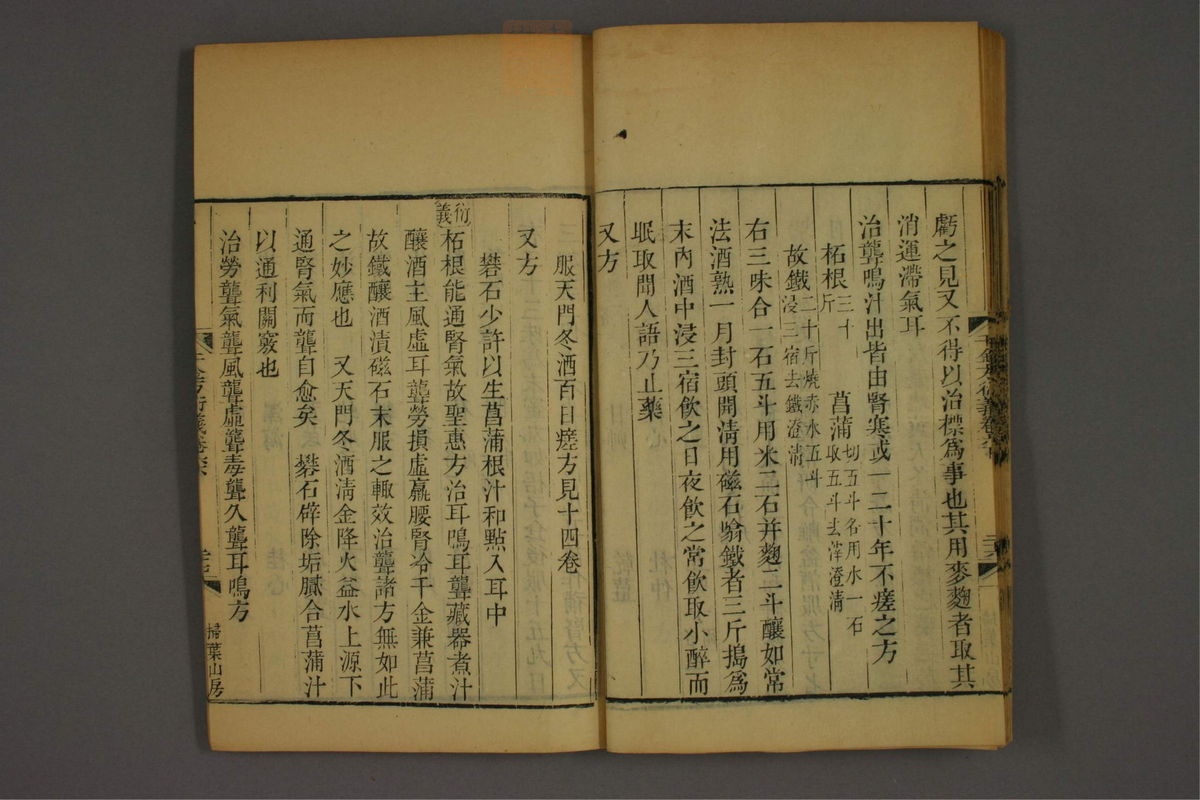 虧之見又不得以治標爲事也其用麥麴者取其
消運滯氣耳
治聾鳴汁出皆由腎寒或一二十年不瘥之方
柘根三十斤 菖蒲切五斗各用水一石取五斗去滓澄淸
故鐵二十斤燒赤水五斗浸三宿去鐵澄淸
右三味合一石五斗用米二石并麴二斗釀如常
法酒熟一月封頭開淸用磁石吸鐵者三斤搗爲
末內酒中浸三宿飮之日夜飮之常飮取小醉而
眠取聞人語乃止藥
又方
服天門冬酒百日瘥方見十四卷
又方
礬石少許以生菖蒲根汁和點入耳中
衍義
柘根能通腎氣故聖惠方治耳鳴耳聾藏器煮汁
釀酒主風虛耳聾勞損虛羸腰腎冷千金兼菖蒲
故鐵釀酒漬磁石末服之輒效治聾諸方無如此
之妙應也 又天門冬酒淸金降火益水上源下
通腎氣而聾自愈矣 礬石辟除垢膩合菖蒲汁
以通利關竅也
治勞聾氣聾風聾虛聾毒聾久聾耳鳴方
千金方衍義卷六
掃葉山房